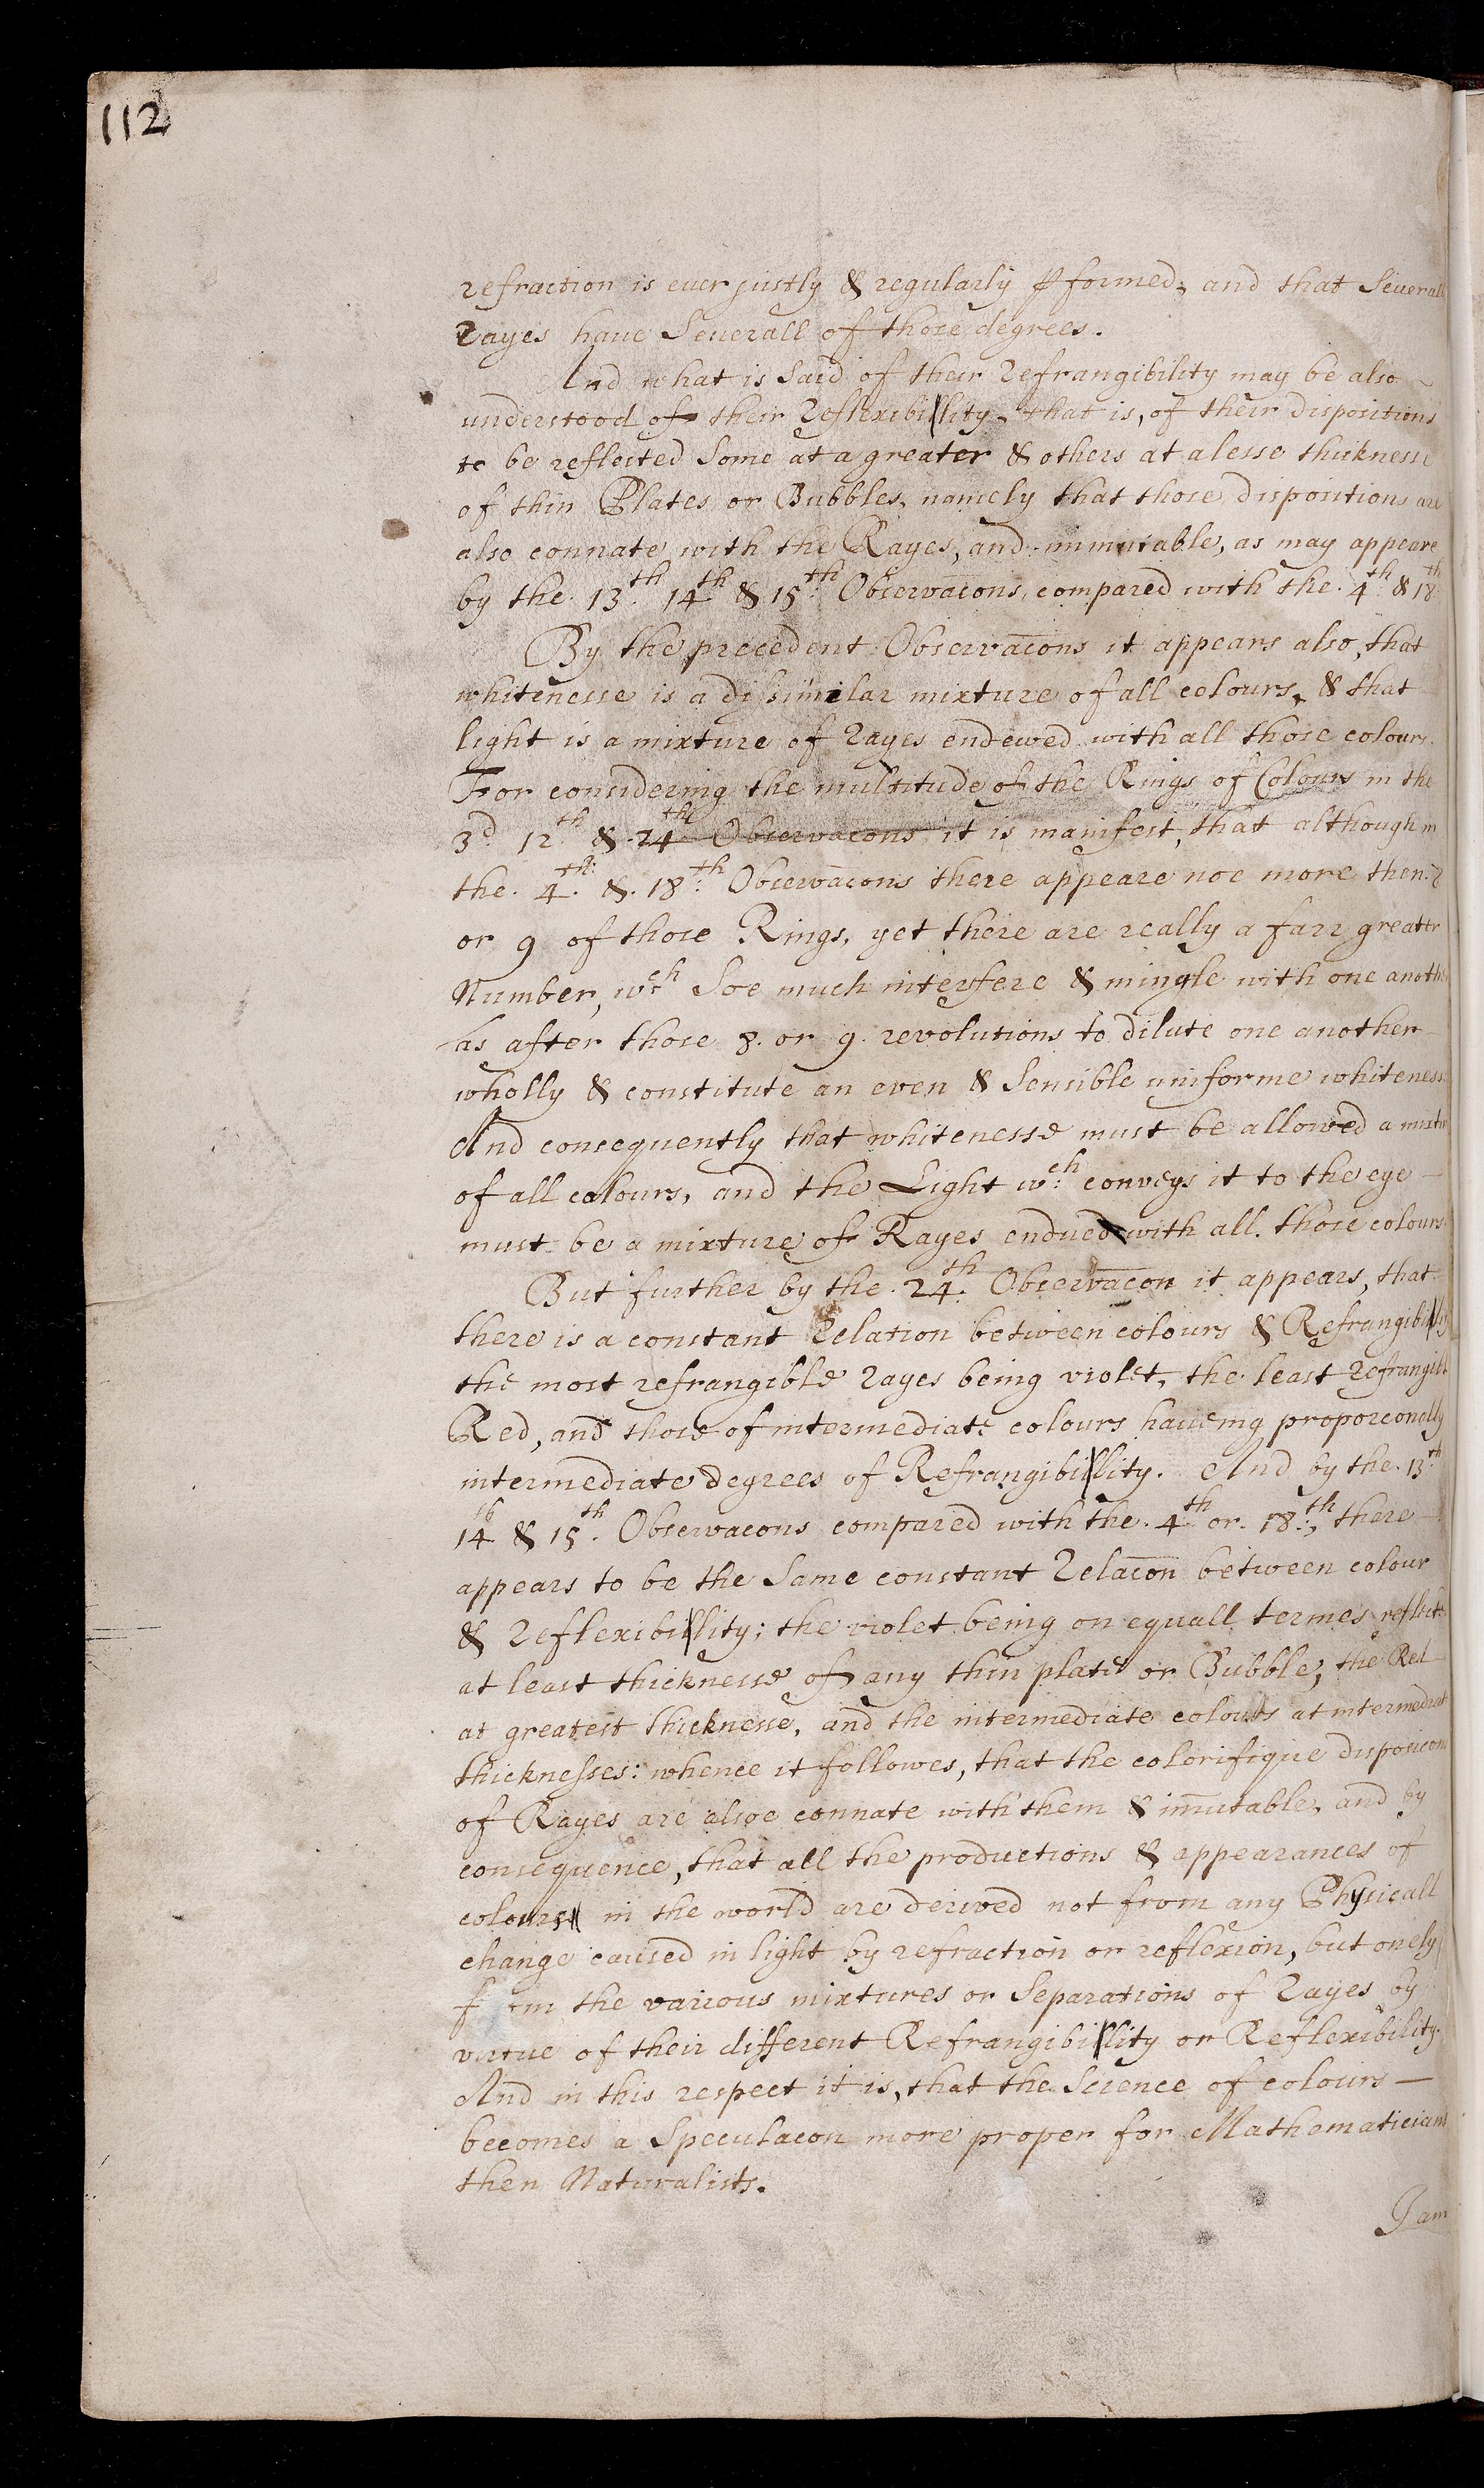 112
refraction is ever justly & regularly ꝑformed, and that Severall
rayes have Severall of those degrees.
And what is Said of their refrangibility may be also
understood of their reflexibillity, that is, of their dispositions
to be reflected Some at a greater & others at a lesse thicknesse
of thin Plates or Bubbles, namely that those dispositions are
also connate with the Rayes, and immutable, as may appeare
by the 13th. 14th & 15th. Observac̄ons, compared with the 4th. & 18th
By the precedent Observac̄ons it appears also, that
whitenesse is a dissimilar mixture of all colours, & that
light is a mixture of rayes endewed with all those colours.
For considering the multitude of the Rings of Colours in the
3d 12th. & 24th Observacons it is manifest, that although in
the 4th. & 18th. Observac̄ons there appeare noe more then 8
or 9 of those Rings, yet there are really a farr greater
Number, wch Soe much interfere & mingle with one another
as after those 8. or 9. revolutions to dilute one another
wholly & constitute an even & Sensible uniforme whitenesse
And consequently that whitenesse must be allowed a mixture
of all colours, and the Light wch. conveys it to the eye —
must be a mixture of Rayes endued with all those colours.
But further by the 24th. Observac̄on it appears, that
there is a constant relation between colours & Refrangibillity
the most refrangible rayes being violet, the least refrangible
Red, and those of intermediate colours haveing proporconally
intermediate degrees of Refrangibillity. And by the 13th
14th & 15th. Observacons compared with the 4th or 18th., there —
appears to be the Same constant relac̄on between colour
& reflexibillity; the violet being on equall termes reflected
at least thicknesse of any thin plate or Bubble, the Red
at greatest thicknesse, and the intermediate colours at intermediate
thicknesses: whence it followes, that the colorifique disposicons
of Rayes are alsoe connate with them & im̄utable, and by
consequence, that all the productions & appearances of
colours in the world are derived not from any Physicall
change caused in light by refraction or reflexion, but onely
from the various mixtures or Separations of rayes by
virtue of their different Refrangibillity or Reflexibility.
And in this respect it is, that the Science of colours —
becomes a Speculacon more proper for Mathematicians
then Naturalists.
I am